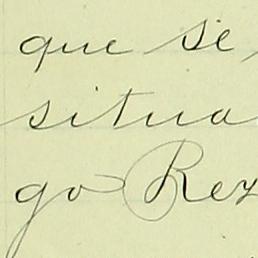 que se
situa
go Rez